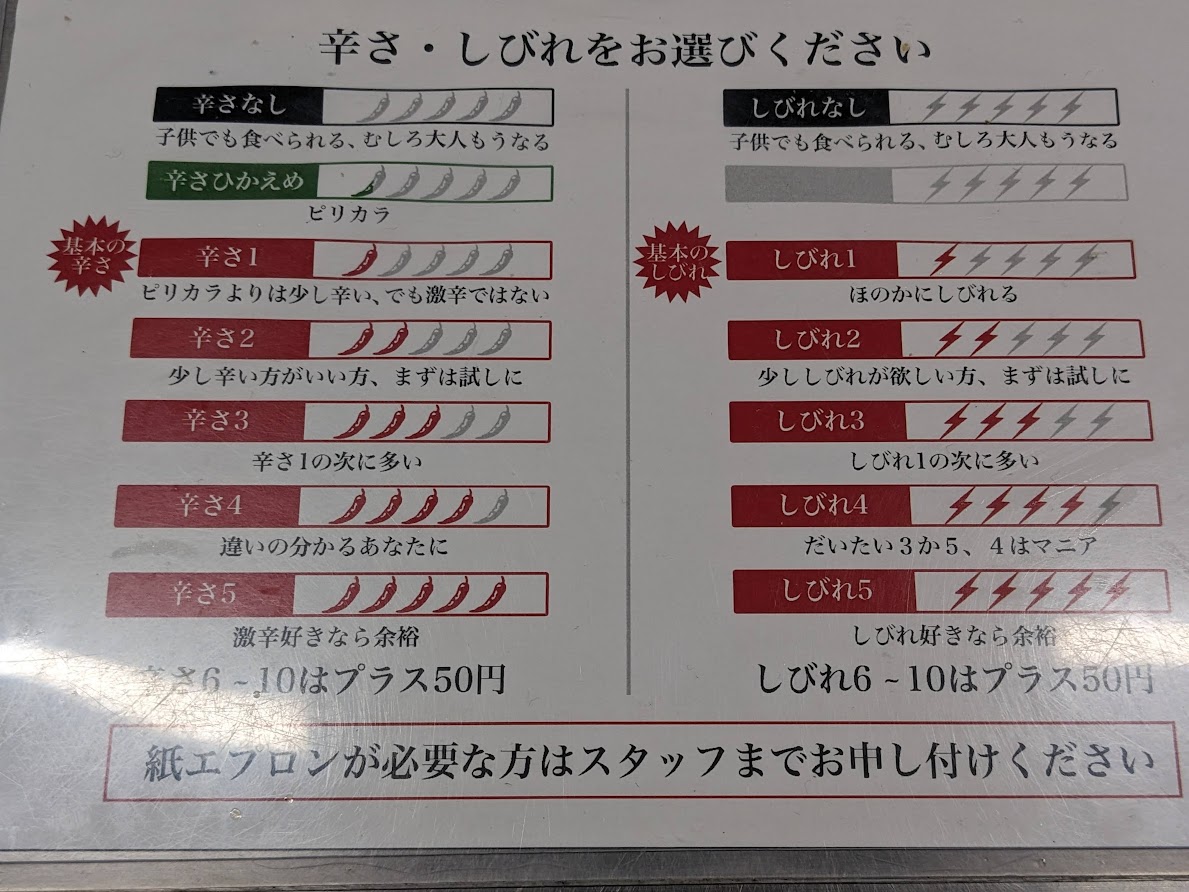 辛さ・しびれをお選びください
辛さなし
子供でも食べられる、むしろ大人もうなる
辛さひかえめ
ピリカラ
基本の
辛さ
辛さ1
ピリカラよりは少し辛い、でも激辛ではない
辛さ2
少し辛い方がいい方、まずは試しに
辛さ3
辛さ1の次に多い
辛さ4
違いの分かるあなたに
辛さ5
激辛好きなら余裕
辛さ6~10はプラス50円
しびれなし
子供でも食べられる、むしろ大人もうなる
基本の
しびれ
しびれ1
ほのかにしびれる
しびれ2
少ししびれが欲しい方、まずは試しに
しびれ3
しびれ1の次に多い
しびれ4
だいたい3か5、4はマニア
しびれ5
しびれ好きなら余裕
しびれ6~10はプラス50円
紙エプロンが必要な方はスタッフまでお申し付けください